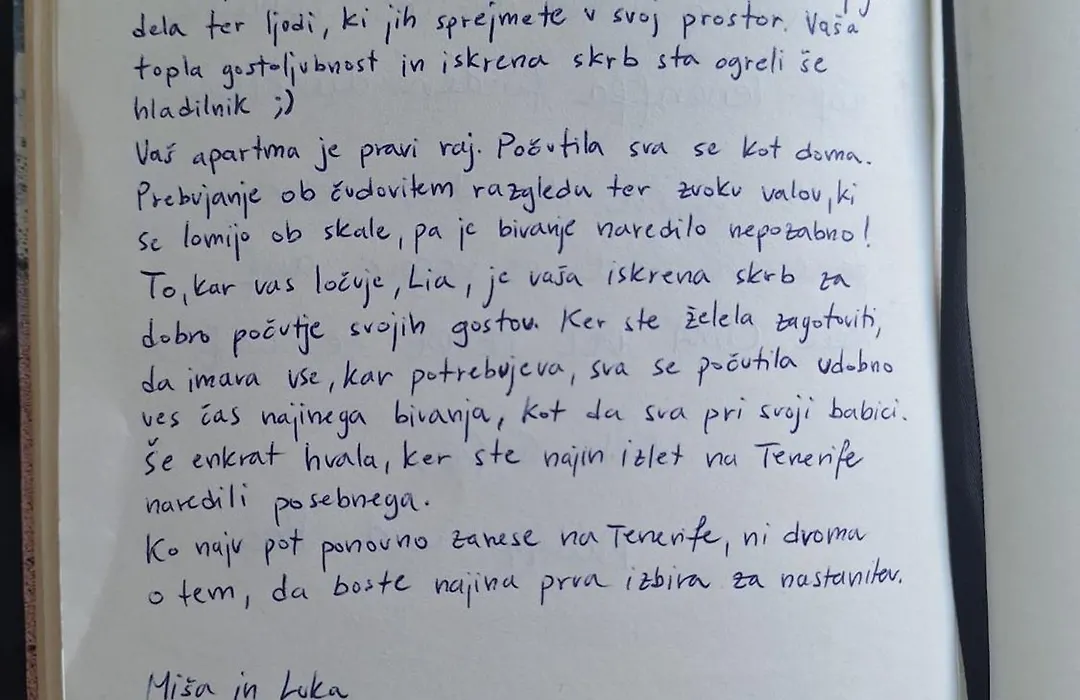 dela ter ljudi, ki jih sprejmete v svoj prostor. Vaša
topla gostoljubnost in iskrena skrb sta ogreli še
hladilnik ;)
Vaš apartma je pravi raj. Počutila sva se kot doma.
Prebujanje ob čudovitem razgledu ter zvoku valov, ki
se lomijo ob skale, pa je bivanje naredilo nepozabno!
To, kar vas ločuje, Lia, je vaša iskrena skrb za
dobro počutje svojih gostov. Ker ste želela zagotoviti,
da imava vse, kar potrebujeva, sva se počutila udobno
ves čas najinega bivanja, kot da sva pri svoji babici.
Še enkrat hvala, ker ste najin izlet na Tenerife
naredili posebnega.
Ko naju pot ponovno zanese na Tenerife, ni dvoma
o tem, da boste najina prva izbira za nastanitev.
Miša in Luka